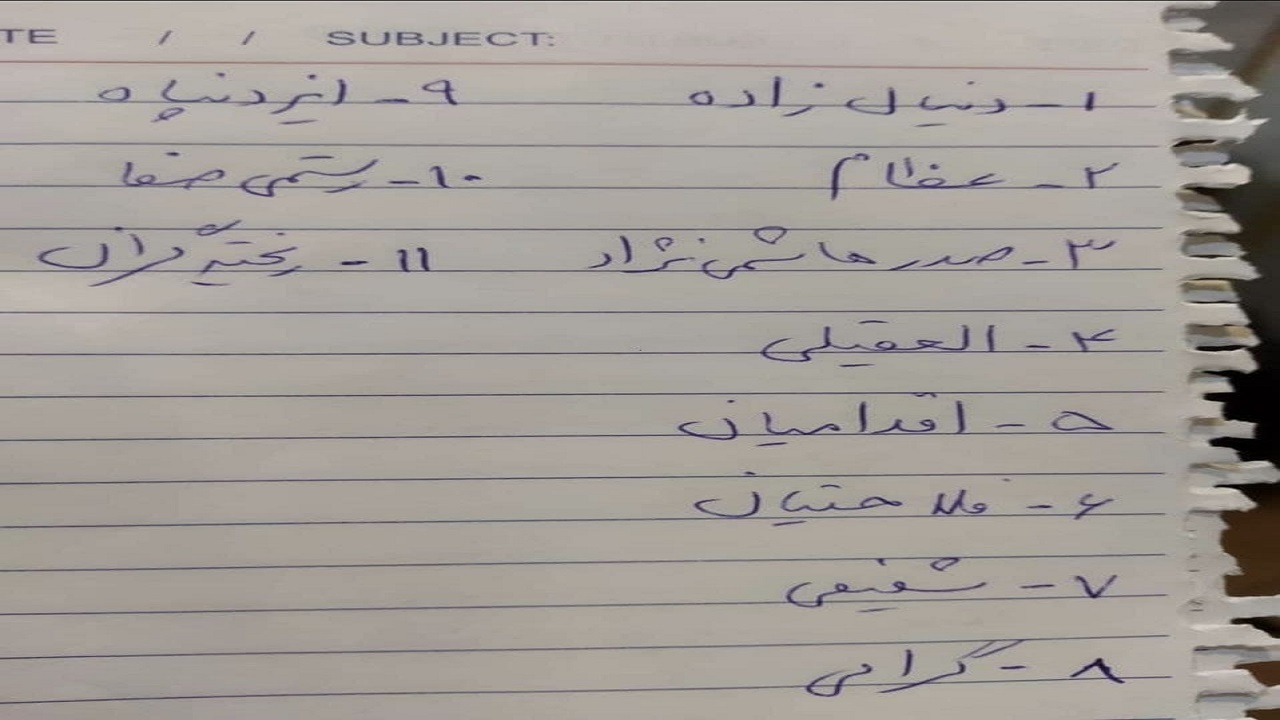 TE / / SUBJECT:
۱- دنیال زاده
۲- عظام
۳- صدر هاشمی نژاد
۴- العقیلی
۵- اقدامیان
۶- فلاحتیان
۷- شفیعی
۸- گرامی
۹- ایزدپناه
۱۰- رستمی صفا
۱۱- ریخته گران